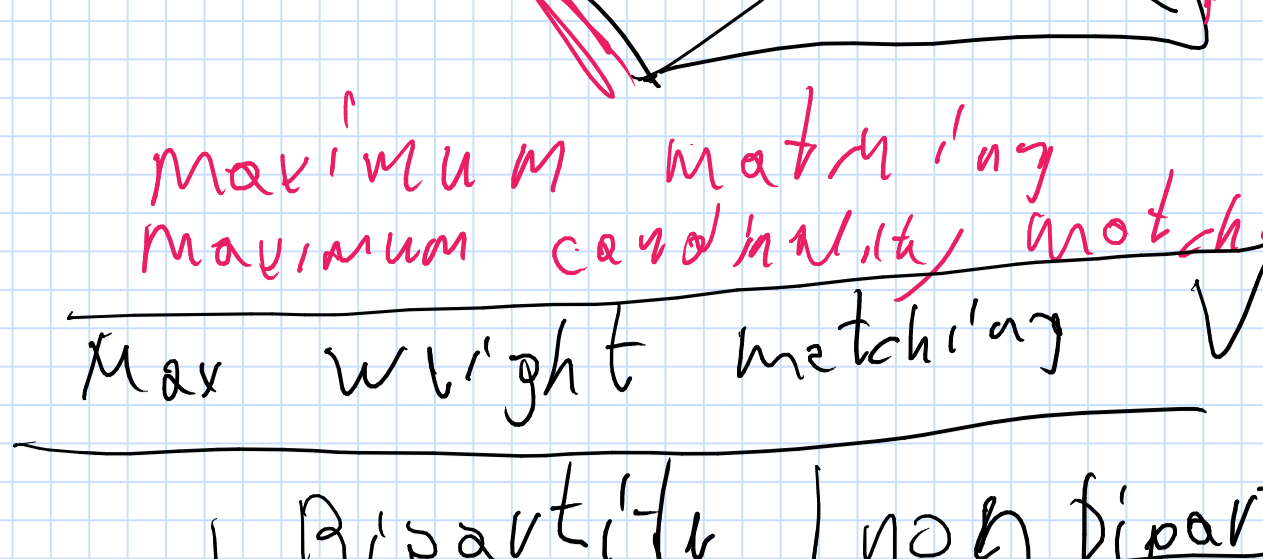 maximum matching
maximum cardinality match
Max weight matching
Bipartite | non bipar